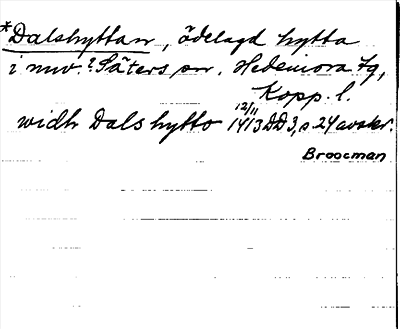 *Dalshyttan, ödelagd hytta
i nuv. ? Säters sn, Hedemora tg,
Kopp. l.
widh Dals hytto 12/11 1413 DD 3, s. 24 avskr.
Broocman